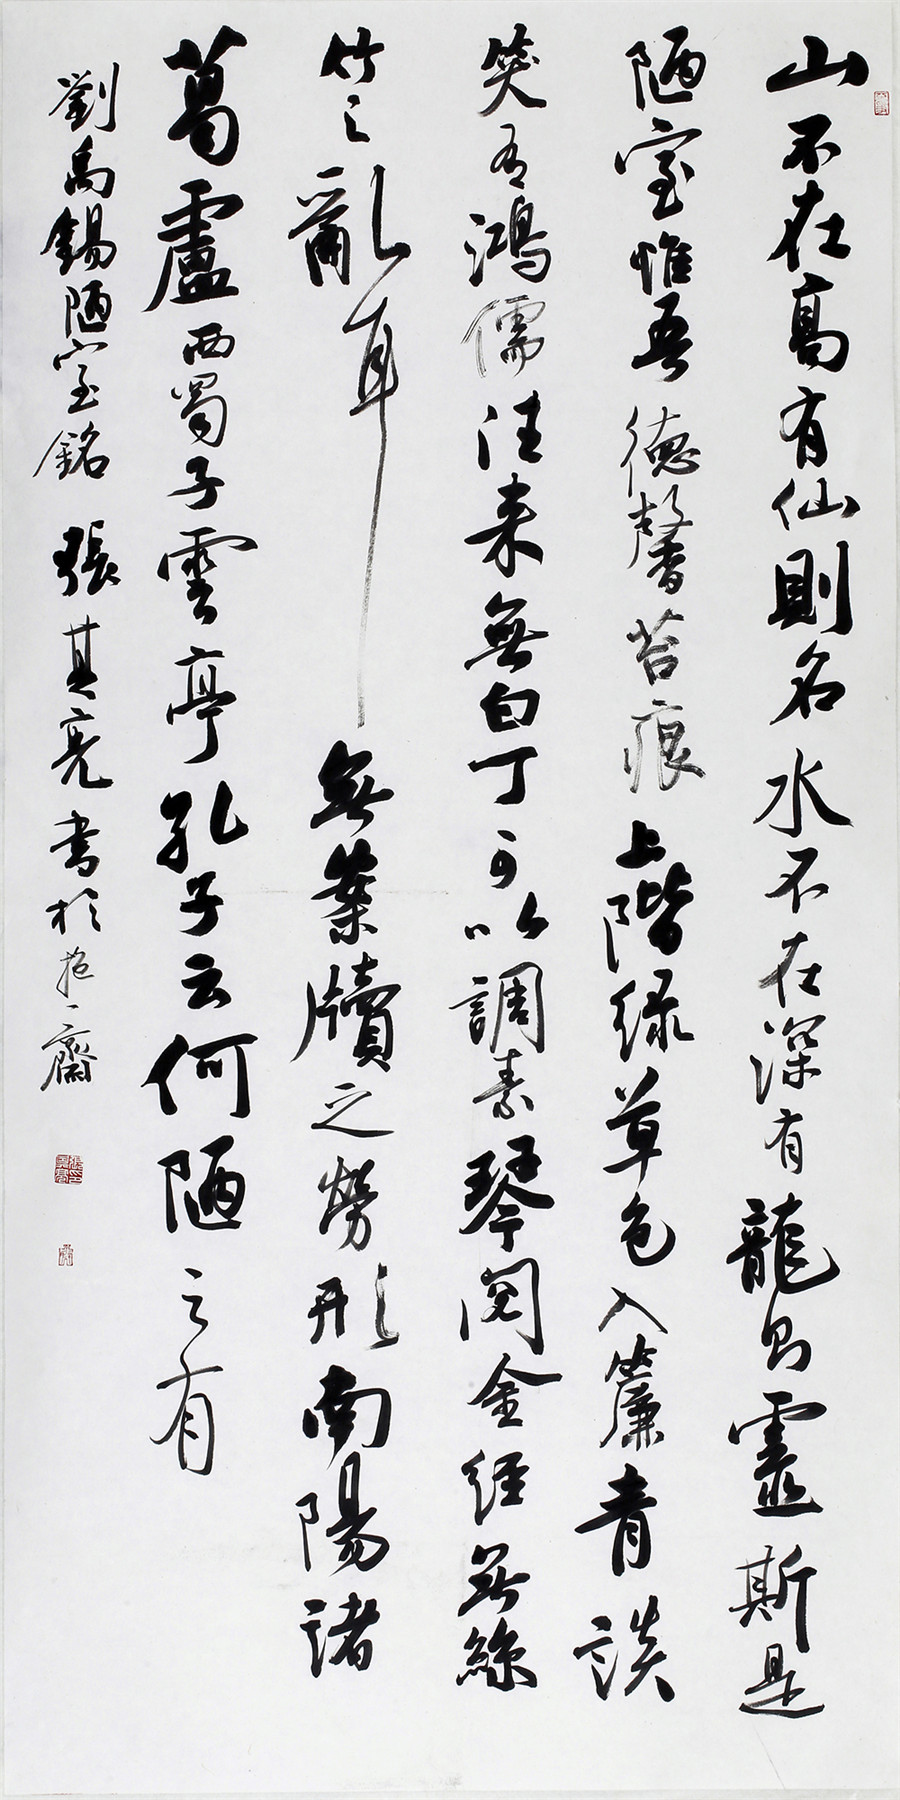 山不在高有仙則名水不在深有龍則靈斯是
陋室惟吾德馨苔痕上階緑草色入簾青談
笑有鴻儒往来無白丁可以調素琴閱金經無絲
竹之亂耳無案牘之勞形南陽諸
葛廬西蜀子雲亭孔子云何陋之有
劉禹錫陋室銘 張其亮書於抱一齋